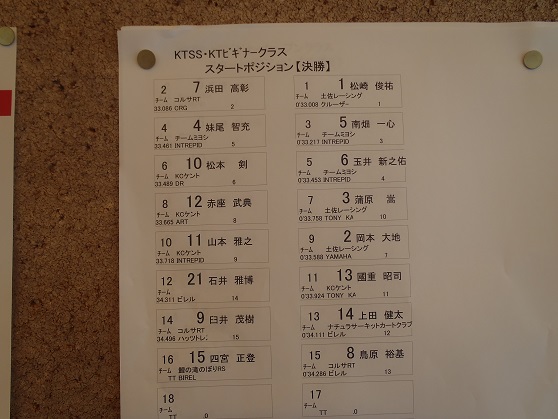 KTSS・KTﾋﾞｷﾞﾅｰクラス
スタートポジション【決勝】
2 7 浜田 高彰
ﾁｰﾑ コルサRT
33.086 CRG 2
1 1 松崎 俊祐
ﾁｰﾑ 土佐レーシング
0'33.008 クルーザー 1
4 4 妹尾 智充
ﾁｰﾑ チームミヨシ
33.461 INTREPID 5
3 5 南畑 一心
ﾁｰﾑ チームミヨシ
0'33.217 INTREPID 3
6 10 松本 剣
ﾁｰﾑ KCケント
33.489 DR 6
5 6 玉井 新之佑
ﾁｰﾑ チームミヨシ
0'33.453 INTREPID 4
8 12 赤座 武典
ﾁｰﾑ KCケント
33.665 ART 8
7 3 蒲原 嵩
ﾁｰﾑ 土佐レーシング
0'33.758 TONY KA 10
10 11 山本 雅之
ﾁｰﾑ KCケント
33.718 INTREPID 9
9 2 岡本 大地
ﾁｰﾑ 土佐レーシング
0'33.588 YAMAHA 7
12 21 石井 雅博
ﾁｰﾑ
34.311 ビレル 14
11 13 國重 昭司
ﾁｰﾑ KCケント
0'33.924 TONY KA 11
14 9 臼井 茂樹
ﾁｰﾑ コルサRT
34.496 ハッツトレ: 15
13 14 上田 健太
ﾁｰﾑ ナチュラサーキットカートクラブ
0'34.111 ビレル 12
16 15 四宮 正登
ﾁｰﾑ 鯉の滝のぼりRS
TT BIREL
15 8 鳥原 裕基
ﾁｰﾑ コルサRT
0'34.286 ビレル 13
18
ﾁｰﾑ
TT .0
17
ﾁｰﾑ
TT .0